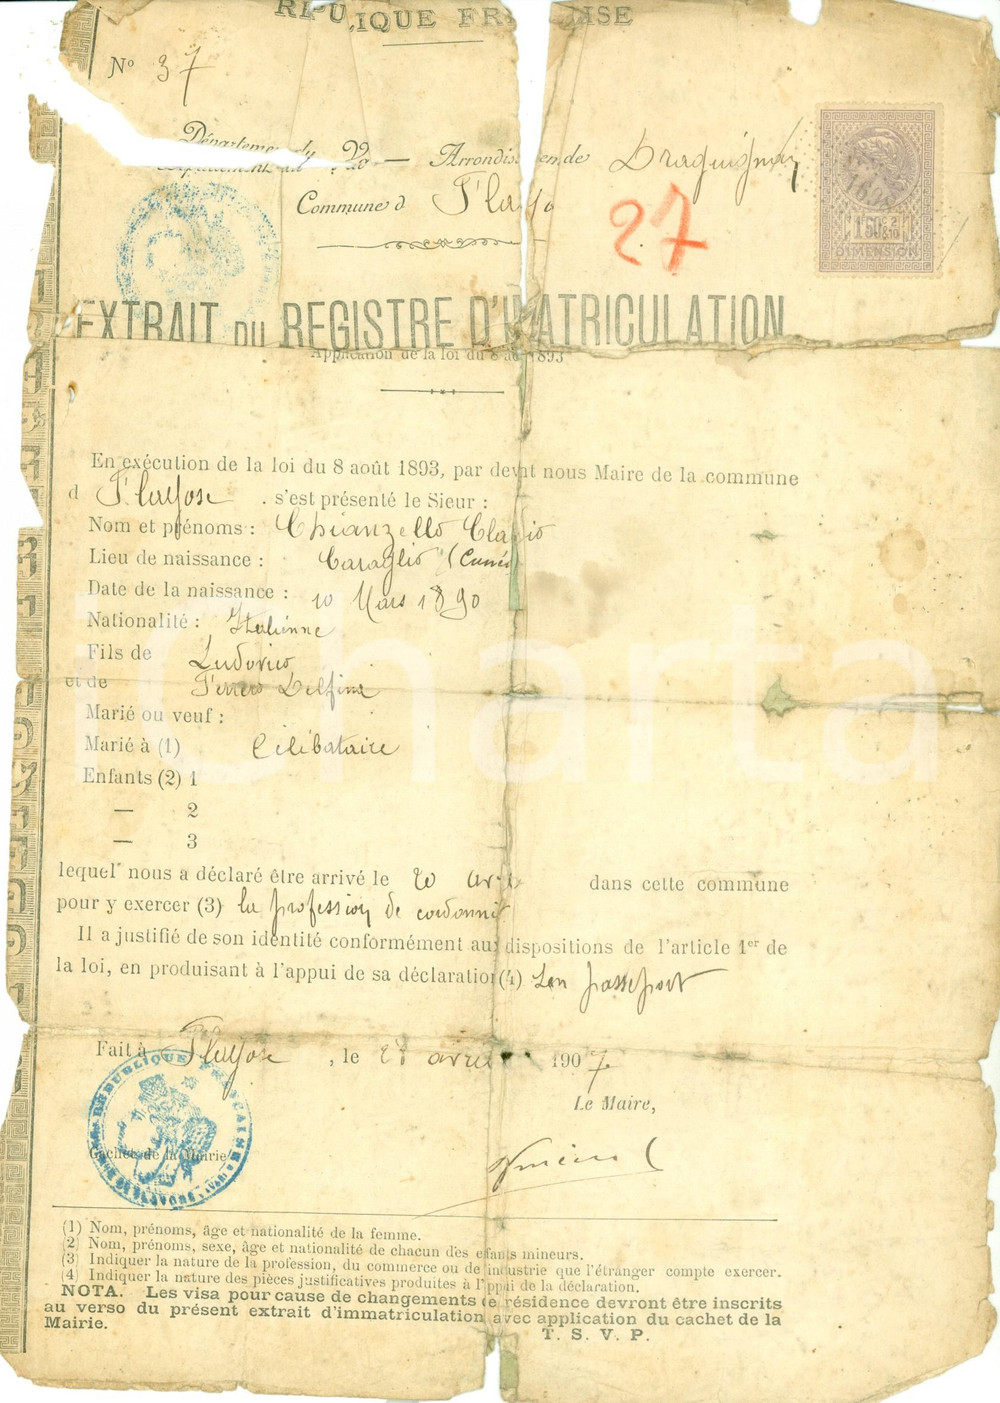 RÉPUBLIQUE FRANÇAISE
N° 37
Département du Var — Arrondissement de Draguignan
Commune d Flayosc
27
1 50c 2/10
DIMENSION
EXTRAIT DU REGISTRE D'IMMATRICULATION
Application de la loi du 8 août 1893
En exécution de la loi du 8 août 1893, par devant nous Maire de la commune
d Flayosc . s'est présenté le Sieur :
Nom et prénoms : Chianzello Clavio
Lieu de naissance : Caraglio (Cunéo
Date de la naissance : 10 Mars 1890
Nationalité : Italienne
Fils de Ludovico
et de Ferrero Delfine
Marié ou veuf :
Marié à (1) Célibataire
Enfants (2) 1
— 2
— 3
lequel nous a déclaré être arrivé le 20 avril dans cette commune
pour y exercer (3) la profession de cordonnier
Il a justifié de son identité conformément aux dispositions de l'article 1er de
la loi, en produisant à l'appui de sa déclaration (4) son passeport
Fait à Flayosc , le 28 avril 1907
Le Maire,
RÉPUBLIQUE FRANÇAISE
MAIRIE DE FLAYOSC (Var)
Cachet de la Mairie
(1) Nom, prénoms, âge et nationalité de la femme.
(2) Nom, prénoms, sexe, âge et nationalité de chacun des enfants mineurs.
(3) Indiquer la nature de la profession, du commerce ou de industrie que l'étranger compte exercer.
(4) Indiquer la nature des pièces justificatives produites à l'appui de la déclaration.
NOTA. Les visa pour cause de changements de résidence devront être inscrits
au verso du présent extrait d'immatriculation avec application du cachet de la
Mairie.
T. S. V. P.
charta